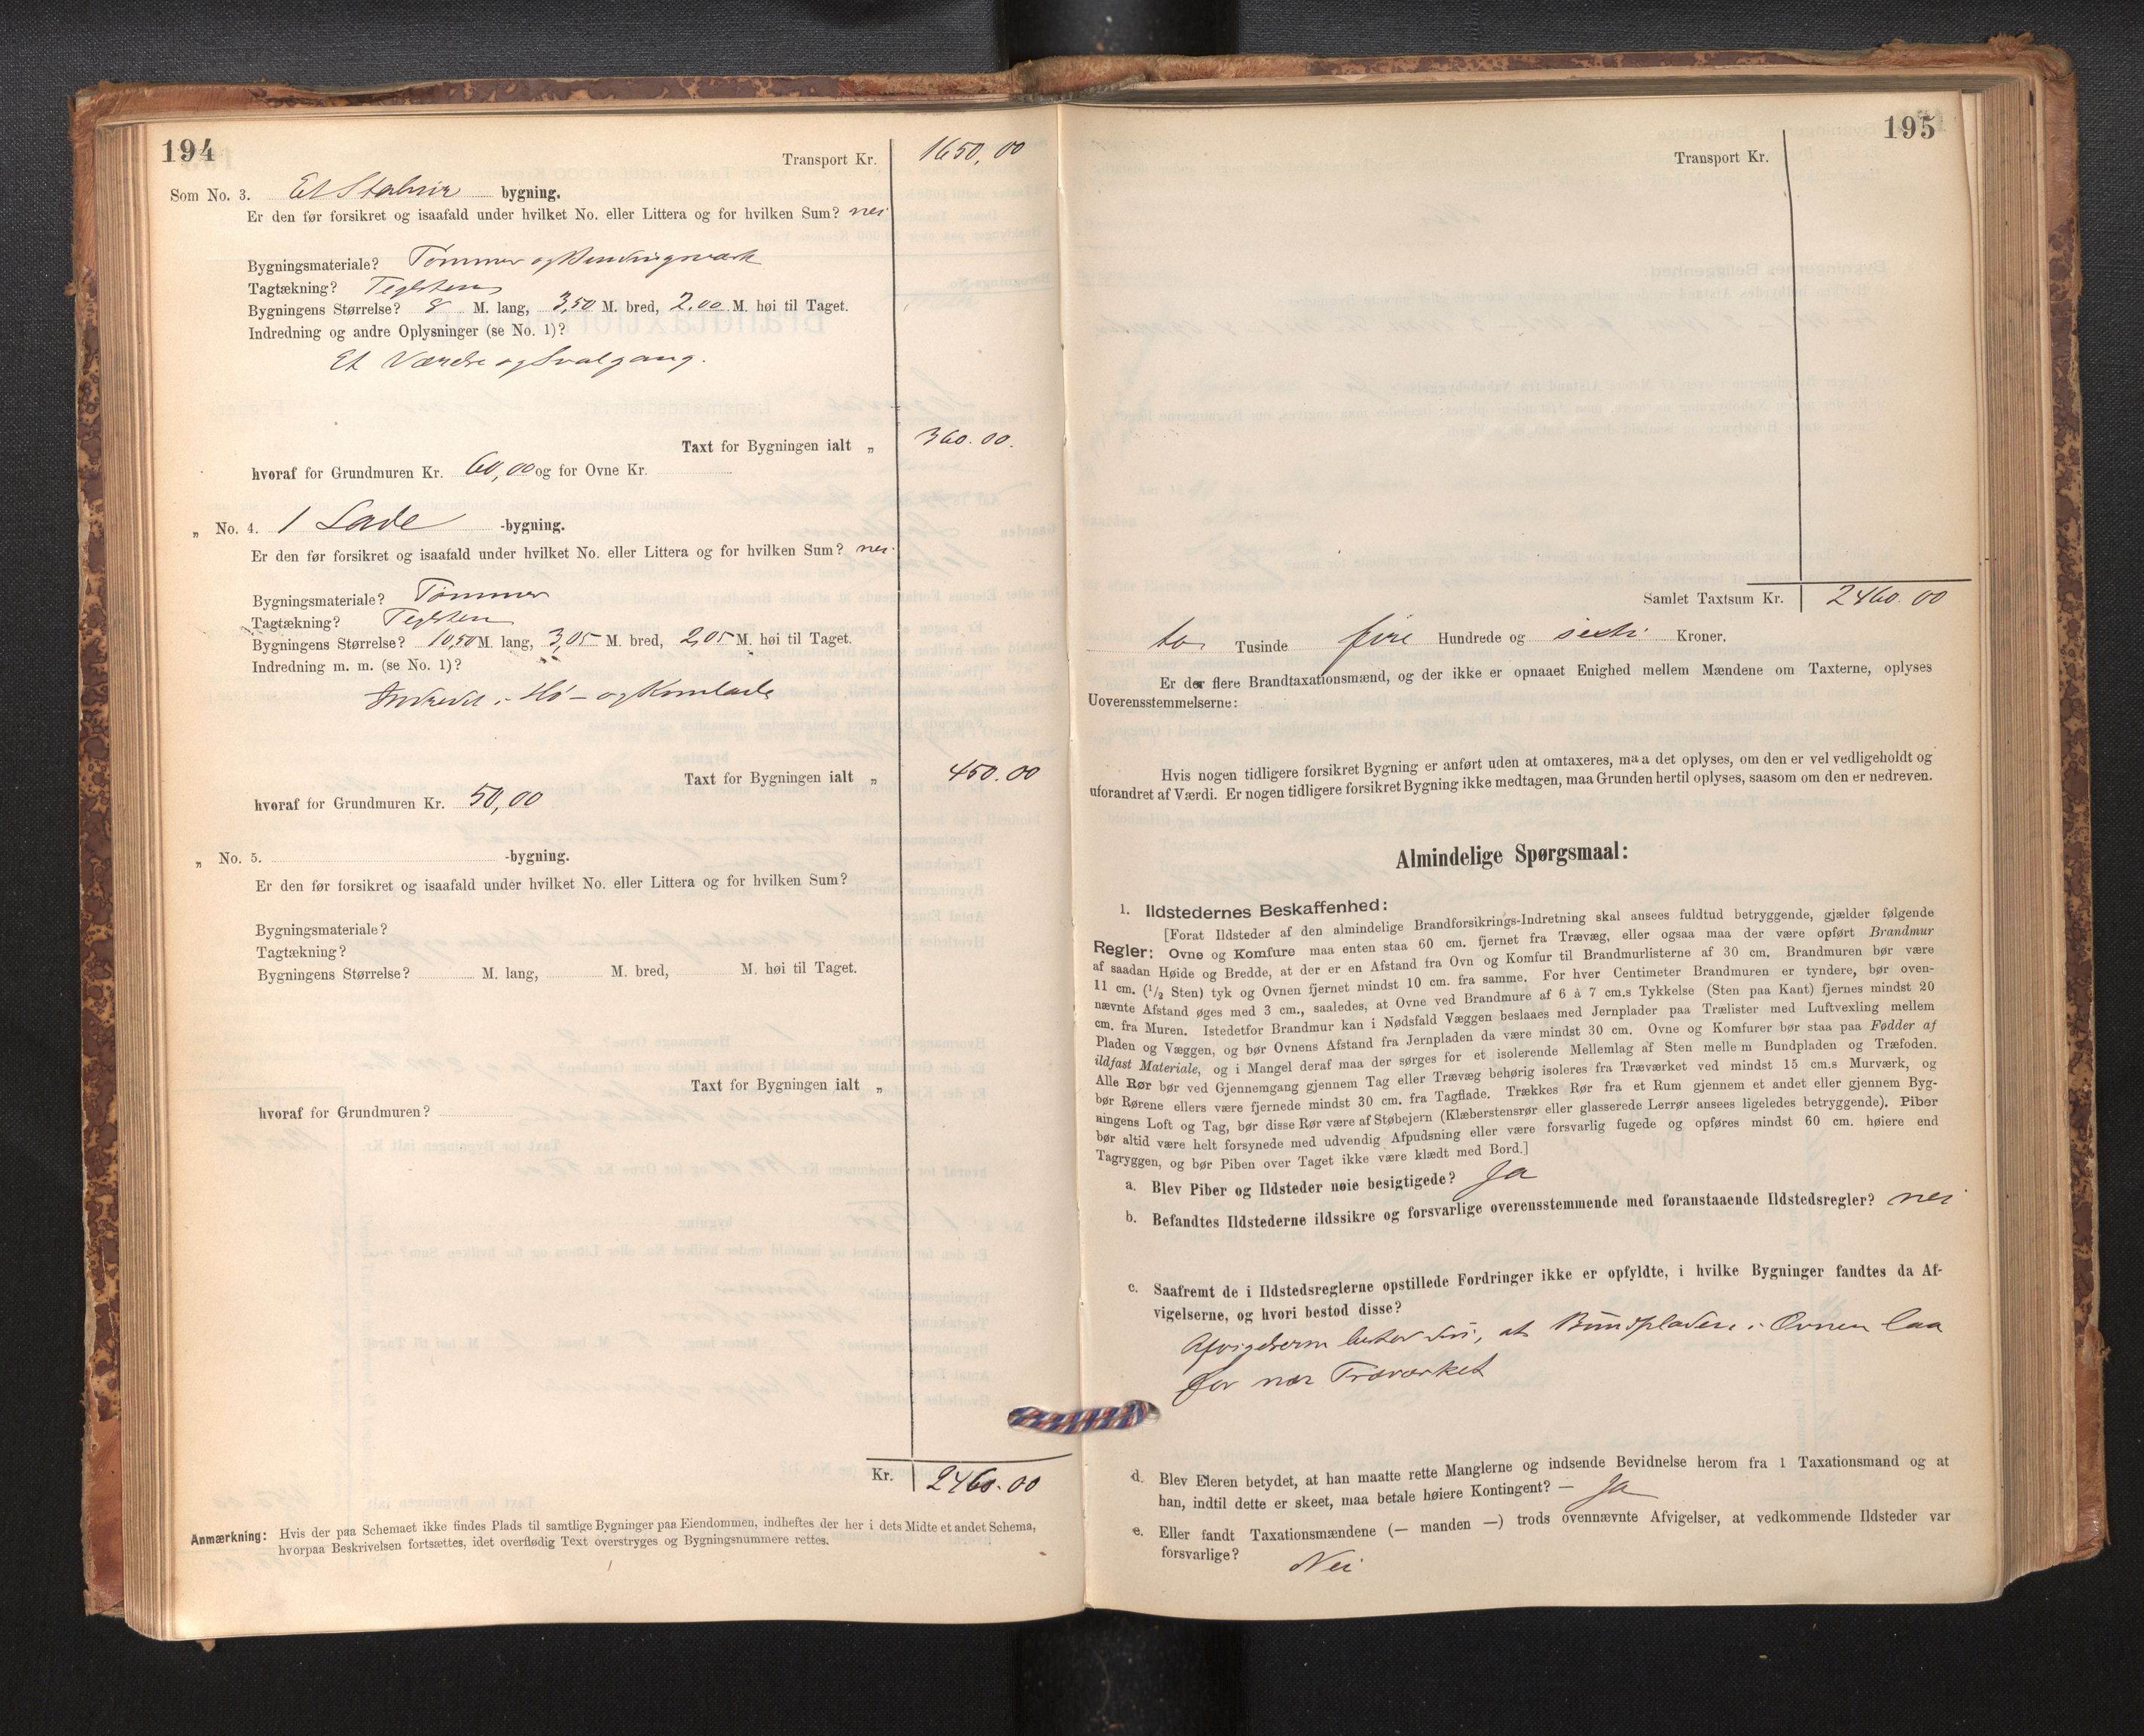 194
Transport Kr. 1650,00
Som No. 3. Et Stabur bygning.
Er den før forsikret og isaafald under hvilket No. eller Littera og for hvilken Sum? nei
Bygningsmateriale? Tømmer og Bindingsværk
Tagtækning? Teglsten
Bygningens Størrelse? 8 M. lang, 3,50 M. bred, 2,00 M. høi til Taget.
Indredning og andre Oplysninger (se No. 1)?
Et Værelse og Svalgang.
Taxt for Bygningen ialt „ 360.00.
hvoraf for Grundmuren Kr. 60,00 og for Ovne Kr.
„ No. 4. 1 Lade -bygning.
Er den før forsikret og isaafald under hvilket No. eller Littera og for hvilken Sum? nei
Bygningsmateriale? Tømmer
Tagtækning? Teglsten
Bygningens Størrelse? 10,50 M. lang, 3,05 M. bred, 2,05 M. høi til Taget.
Indredning m. m. (se No. 1)?
Indredet i Hø- og Kornlade
Taxt for Bygningen ialt „ 450.00
hvoraf for Grundmuren Kr. 50,00
„ No. 5. -bygning.
Er den før forsikret og isaafald under hvilket No. eller Littera og for hvilken Sum?
Bygningsmateriale?
Tagtækning?
Bygningens Størrelse? M. lang, M. bred, M. høi til Taget.
Taxt for Bygningen ialt „
hvoraf for Grundmuren?
Kr. 2460.00
Anmærkning: Hvis der paa Schemaet ikke findes Plads til samtlige Bygninger paa Eiendommen, indheftes der her i dets Midte et andet Schema,
hvorpaa Beskrivelsen fortsættes, idet overflødig Text overstryges og Bygningsnummere rettes.
195
Transport Kr.
Samlet Taxtsum Kr. 2460.00
to Tusinde fire Hundrede og sexti Kroner.
Er der flere Brandtaxationsmænd, og der ikke er opnaaet Enighed mellem Mændene om Taxterne, oplyses
Uoverensstemmelserne:
Hvis nogen tidligere forsikret Bygning er anført uden at omtaxeres, maa det oplyses, om den er vel vedligeholdt og
uforandret af Værdi. Er nogen tidligere forsikret Bygning ikke medtagen, maa Grunden hertil oplyses, saasom om den er nedreven.
Almindelige Spørgsmaal:
1. Ildstedernes Beskaffenhed:
[Forat Ildsteder af den almindelige Brandforsikrings-Indretning skal ansees fuldtud betryggende, gjælder følgende
Regler: Ovne og Komfure maa enten staa 60 cm. fjernet fra Trævæg, eller ogsaa maa der være opført Brandmur
af saadan Høide og Bredde, at der er en Afstand fra Ovn og Komfur til Brandmurlisterne af 30 cm. Brandmuren bør være
11 cm. (1/2 Sten) tyk og Ovnen fjernet mindst 10 cm. fra samme. For hver Centimeter Brandmuren er tyndere, bør oven-
nævnte Afstand øges med 3 cm., saaledes, at Ovne ved Brandmure af 6 à 7 cm.s Tykkelse (Sten paa Kant) fjernes mindst 20
cm. fra Muren. Istedetfor Brandmur kan i Nødsfald Væggen beslaaes med Jernplader paa Trælister med Luftvexling mellem
Pladen og Væggen, og bør Ovnens Afstand fra Jernpladen da være mindst 30 cm. Ovne og Komfurer bør staa paa Fødder af
ildfast Materiale, og i Mangel deraf maa der sørges for et isolerende Mellemlag af Sten mellem Bundpladen og Træfoden.
Alle Rør bør ved Gjennemgang gjennem Tag eller Trævæg behørig isoleres fra Træværket ved mindst 15 cm.s Murværk, og
bør Rørene ellers være fjernede mindst 30 cm. fra Tagflade. Trækkes Rør fra et Rum gjennem et andet eller gjennem Byg-
ningens Loft og Tag, bør disse Rør være af Støbejern (Klæberstensrør eller glasserede Lerrør ansees ligeledes betryggende). Piber
bør altid være helt forsynede med udvendig Afpudsning eller være forsvarlig fugede og opføres mindst 60 cm. høiere end
Tagryggen, og bør Piben over Taget ikke være klædt med Bord.]
a. Blev Piber og Ildsteder nøie besigtigede? Ja
b. Befandtes Ildstederne ildssikre og forsvarlige overensstemmende med foranstaaende Ildstedsregler? nei
c. Saafremt de i Ildstedsreglerne opstillede Fordringer ikke er opfyldte, i hvilke Bygninger fandtes da Af-
vigelserne, og hvori bestod disse?
Afvigelserne bestod i, at Bundpladen i Ovnen laa
for nær Træværket
d. Blev Eieren betydet, at han maatte rette Manglerne og indsende Bevidnelse herom fra 1 Taxationsmand og at
han, indtil dette er skeet, maa betale høiere Kontingent? — Ja
e. Eller fandt Taxationsmændene (— manden —) trods ovennævnte Afvigelser, at vedkommende Ildsteder var
forsvarlige? Nei